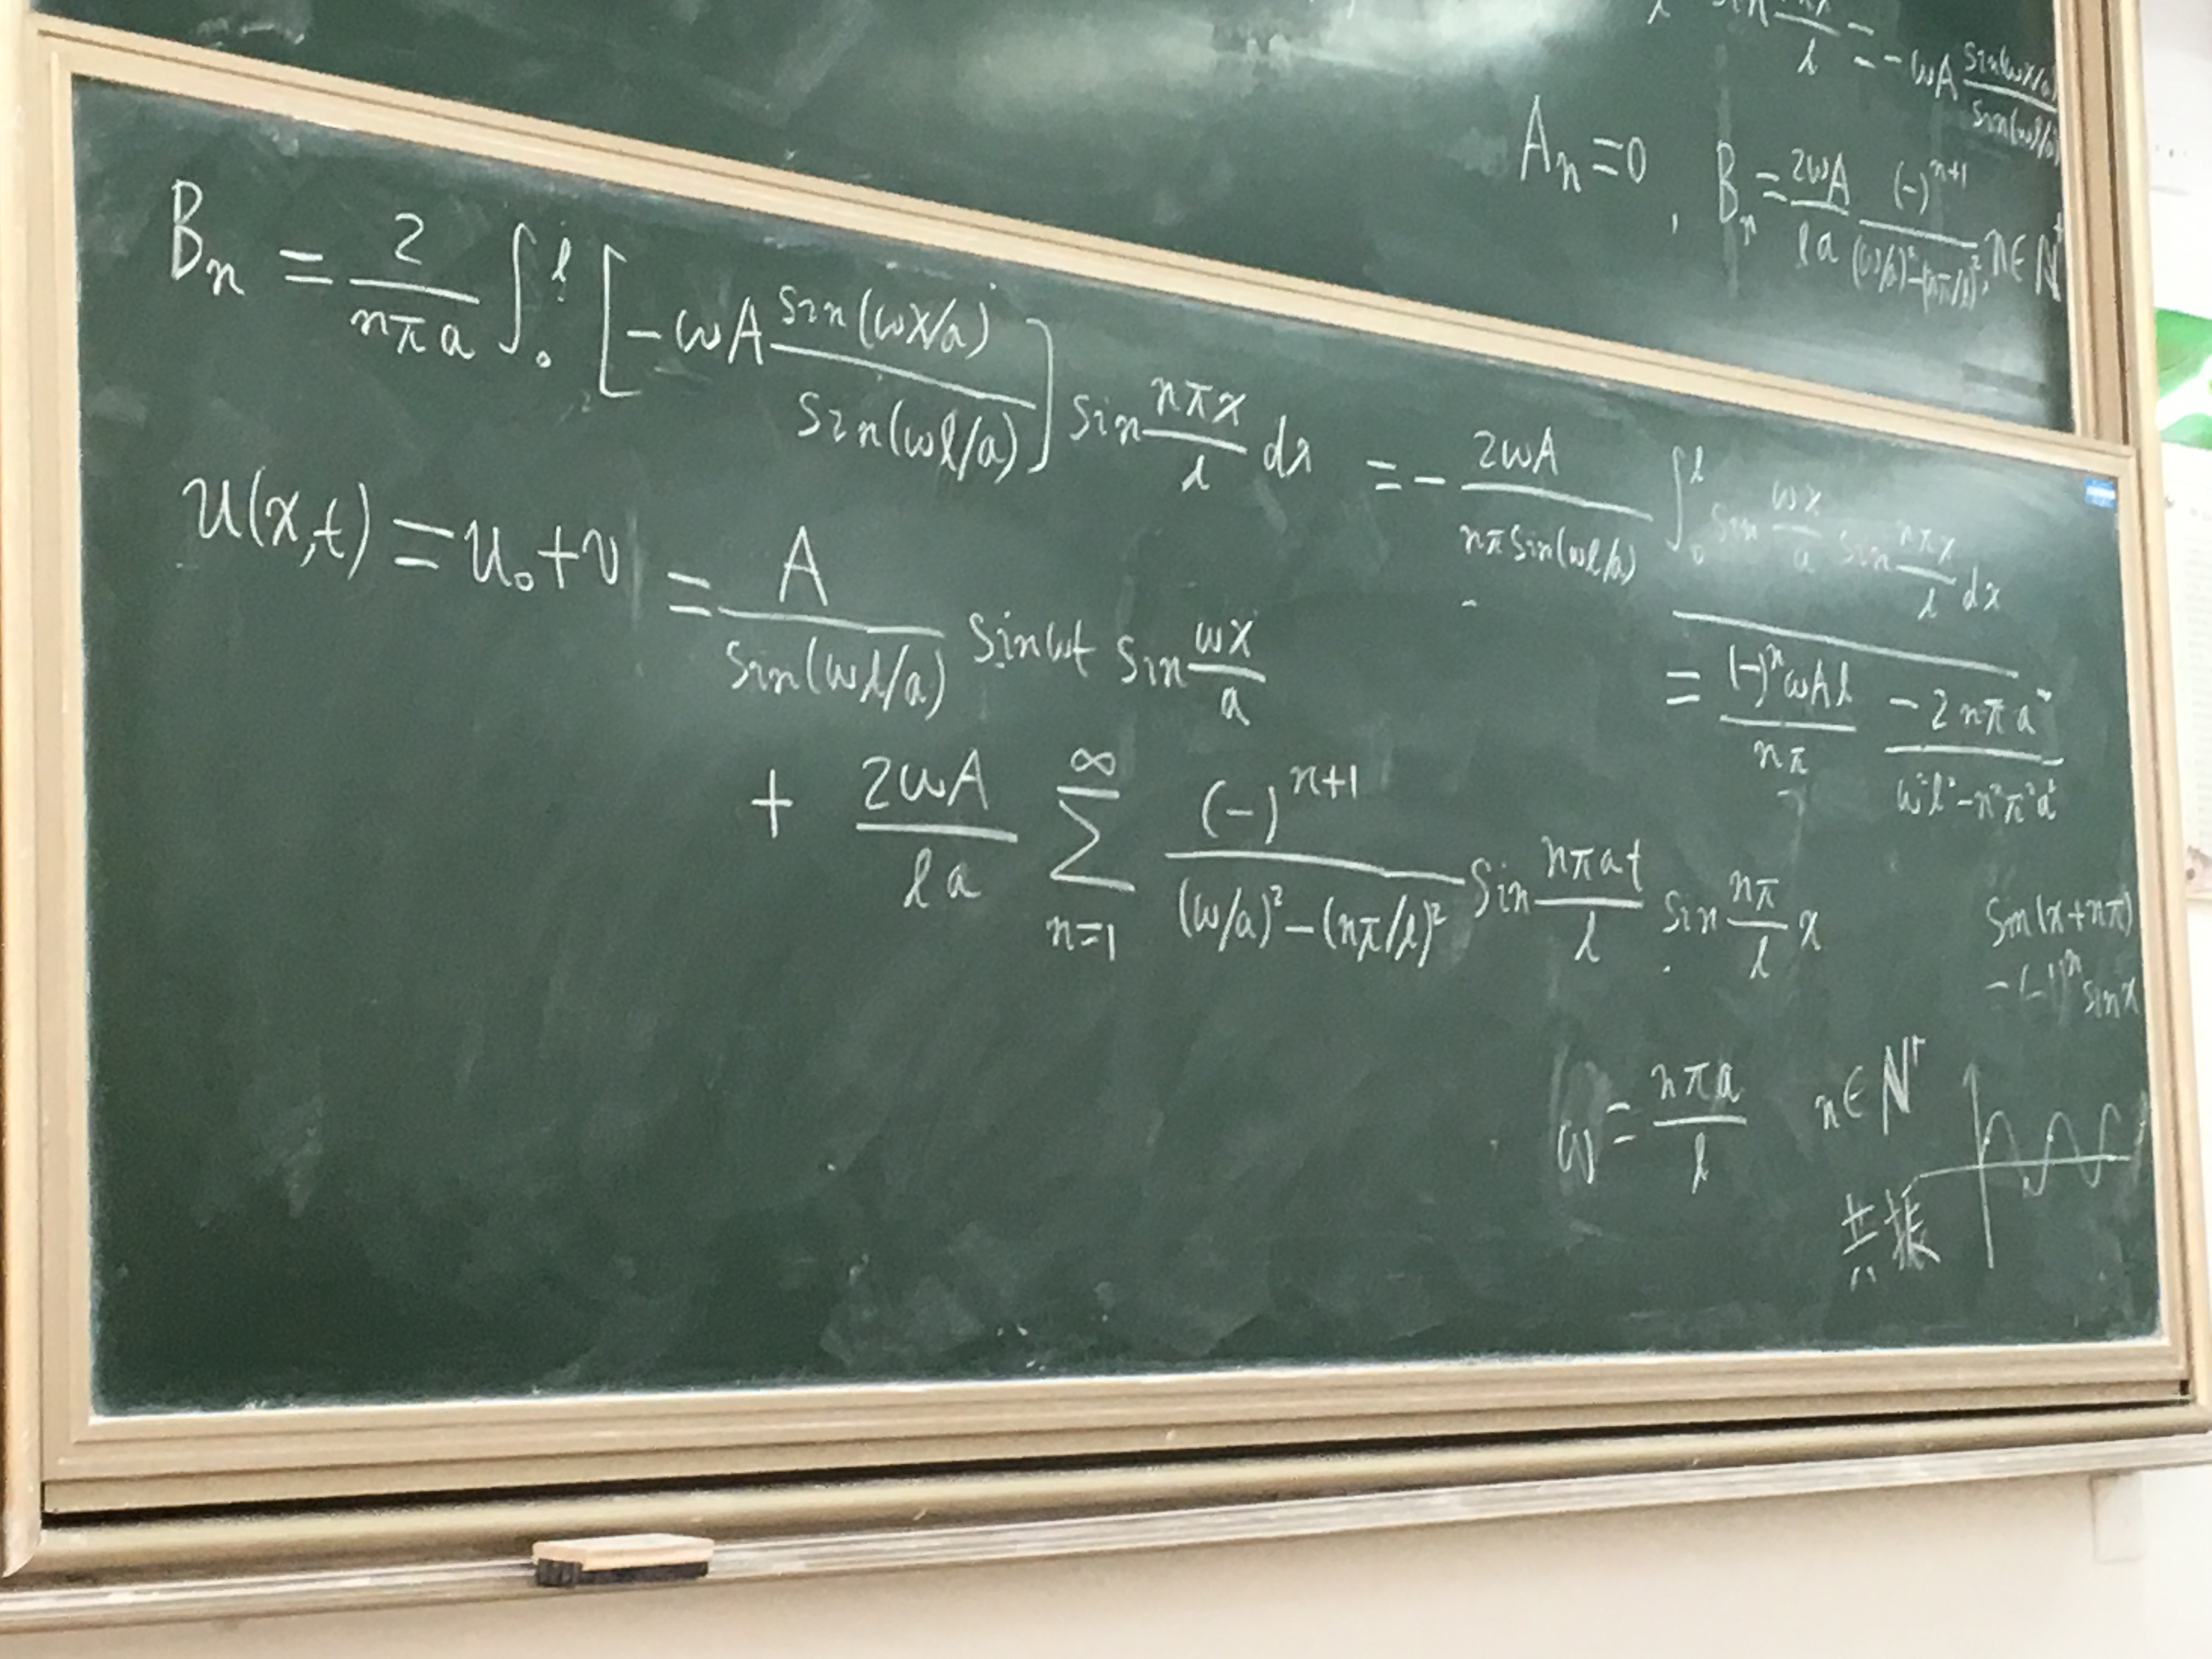 sin nπx/l = -ωA sin(ωx/a)/sin(ωl/a)
A_n = 0 , B_n = 2ωA/la (-)^{n+1}/((ω/a)²-(nπ/l)²), n∈N⁺
B_n = 2/(nπa) ∫_0^l [-ωA sin(ωx/a)/sin(ωl/a)] sin nπx/l dx = - 2ωA/(nπ sin(ωl/a)) ∫_0^l sin ωx/a sin nπx/l dx
= (-)^n ωAl/(nπ) · -2nπa/(ω²l²-n²π²a²)
u(x,t) = u₀+v = A/sin(ωl/a) sinωt sin ωx/a
+ 2ωA/la ∑_{n=1}^∞ (-)^{n+1}/((ω/a)²-(nπ/l)²) sin nπat/l sin nπ/l x
sin(x+nπ)
=(-1)^n sinx
ω = nπa/l n∈N⁺
共振